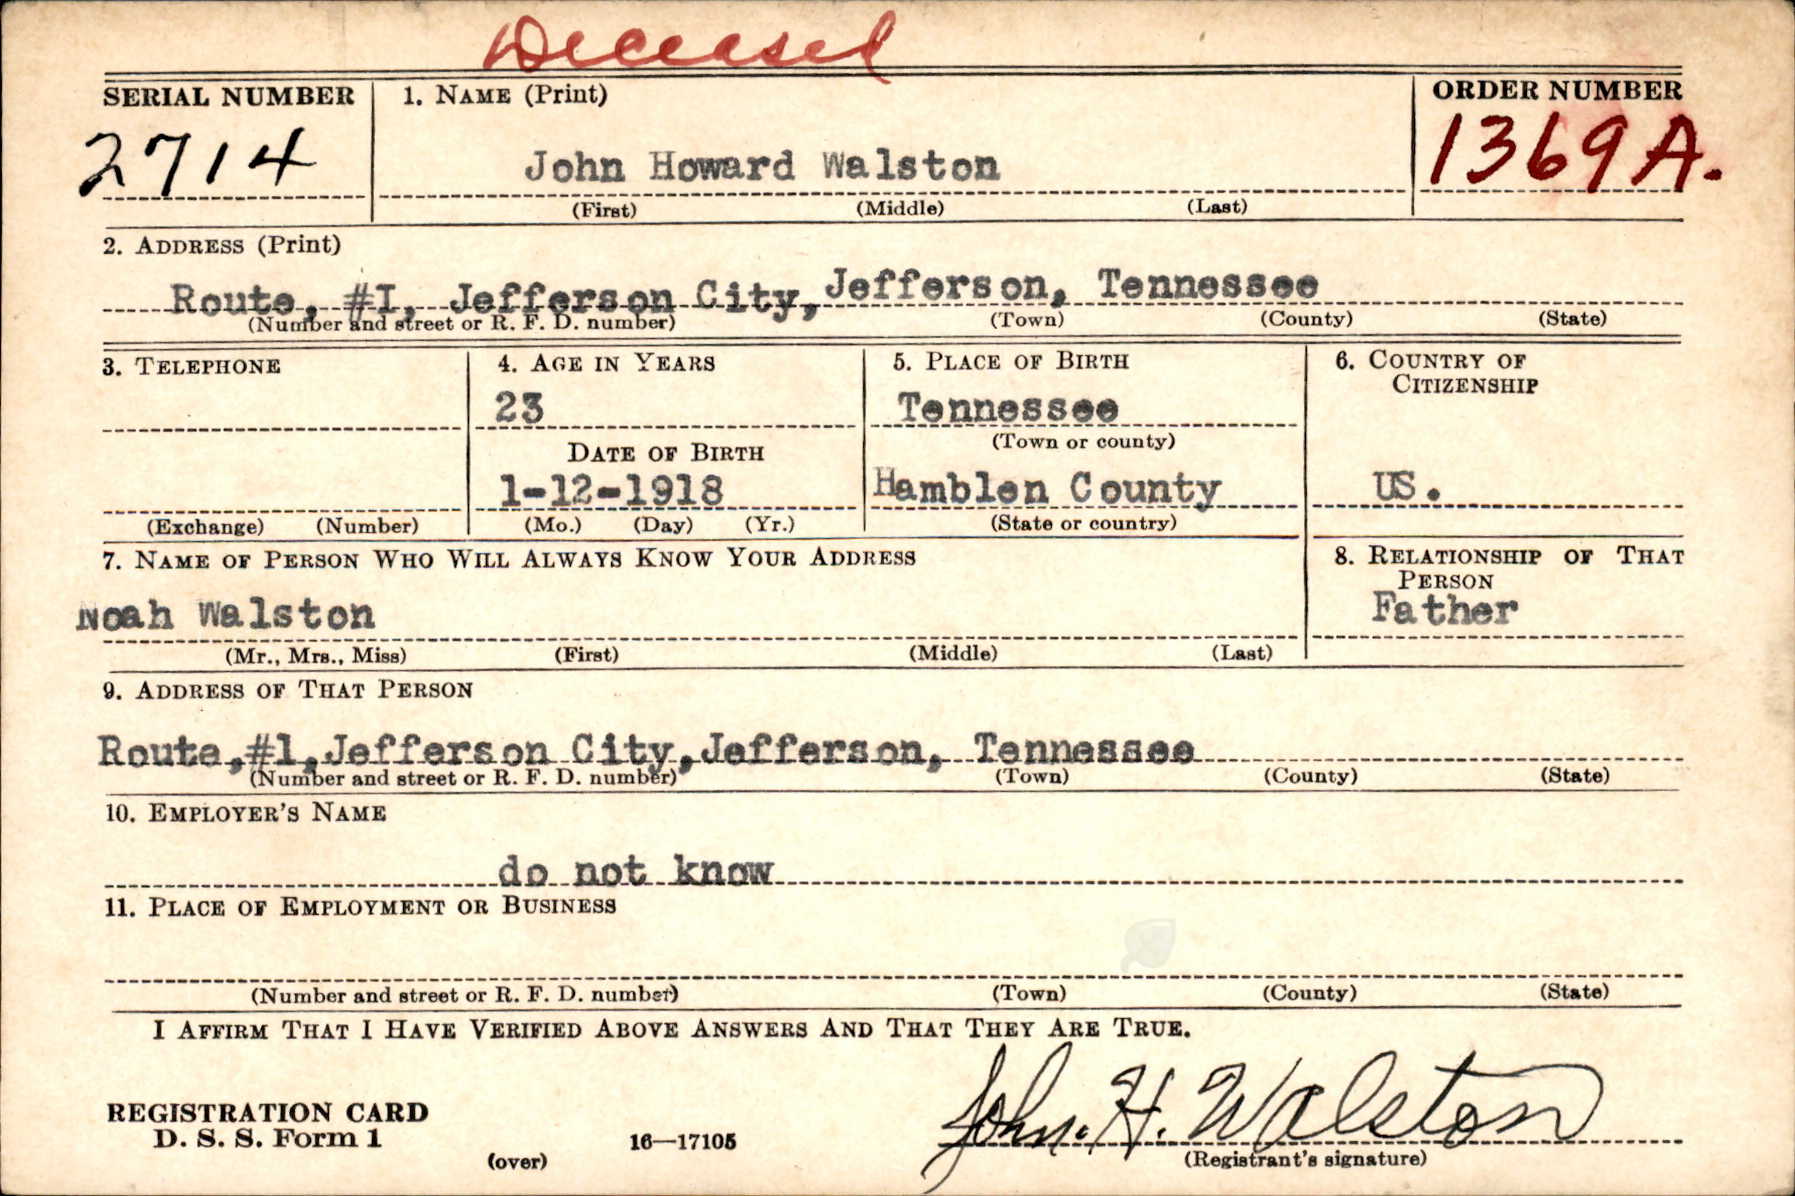 Deceased
SERIAL NUMBER
1. NAME (Print)
ORDER NUMBER
2714
John Howard Walston
1369A.
(First) (Middle) (Last)
2. ADDRESS (Print)
Route, #I, Jefferson City, Jefferson, Tennessee
(Number and street or R. F. D. number) (Town) (County) (State)
3. TELEPHONE
4. AGE IN YEARS
5. PLACE OF BIRTH
6. COUNTRY OF
CITIZENSHIP
23
Tennessee
DATE OF BIRTH
(Town or county)
1-12-1918
Hamblen County
US.
(Exchange) (Number)
(Mo.) (Day) (Yr.)
(State or country)
7. NAME OF PERSON WHO WILL ALWAYS KNOW YOUR ADDRESS
8. RELATIONSHIP OF THAT
PERSON
Noah Walston
Father
(Mr., Mrs., Miss) (First) (Middle) (Last)
9. ADDRESS OF THAT PERSON
Route,#1,Jefferson City,Jefferson, Tennessee
(Number and street or R. F. D. number) (Town) (County) (State)
10. EMPLOYER'S NAME
do not know
11. PLACE OF EMPLOYMENT OR BUSINESS
(Number and street or R. F. D. number) (Town) (County) (State)
I AFFIRM THAT I HAVE VERIFIED ABOVE ANSWERS AND THAT THEY ARE TRUE.
John. H. Walston
REGISTRATION CARD
D. S. S. Form 1
(over)
16—17105
(Registrant's signature)